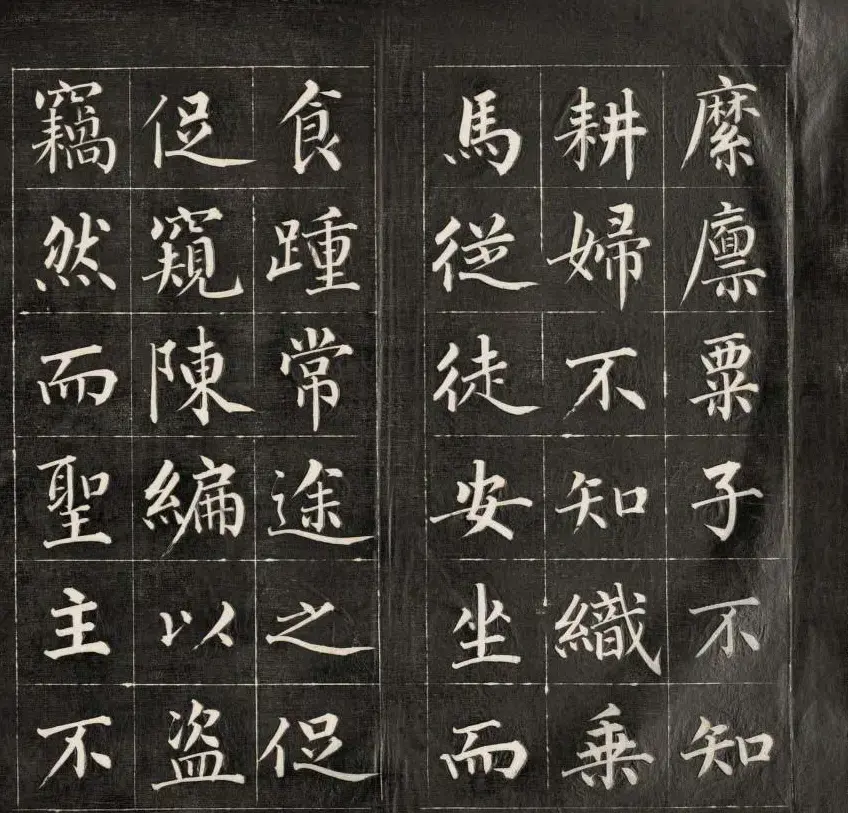 縻廪粟子不知
耕婦不知織乗
馬從徒安坐而
食踵常途之促
促窺陳編以盜
竊然而聖主不